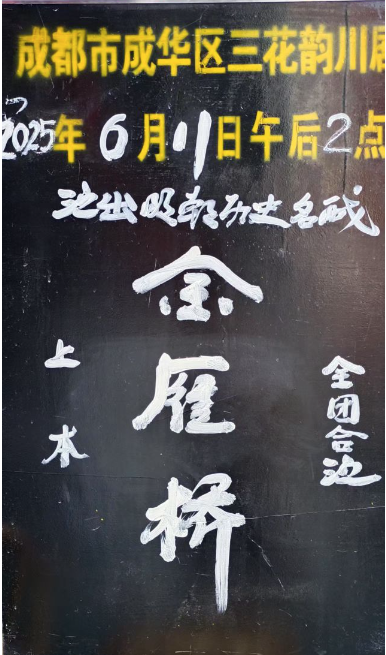 成都市成华区三花韵川剧
2025年6月11日午后2点
演出明朝历史名戏
金雁桥
上本
全团合演